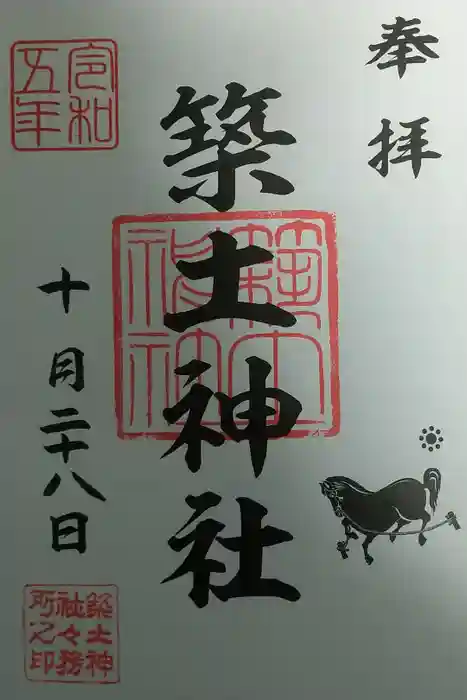 奉拝
築土神社
築土神社
令和五年
十月二十八日
築土神社々務所之印